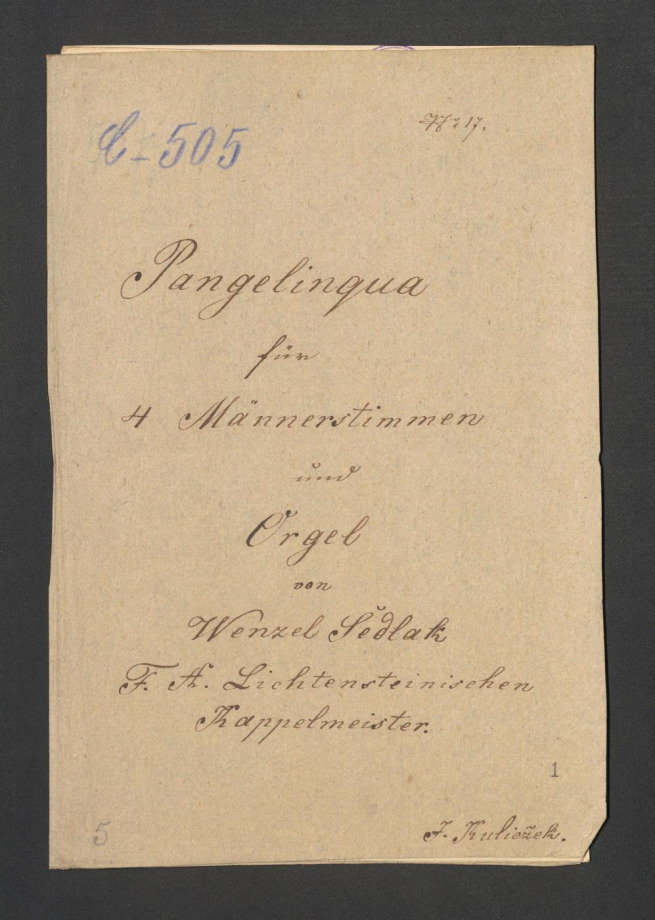 C-505
No 17.
Pangelinqua
für
4 Männerstimmen
und
Orgel
von
Wenzel Sedlak
F. A. Lichtensteinischen
Kappelmeister.
1
5
J. Kuliežek.